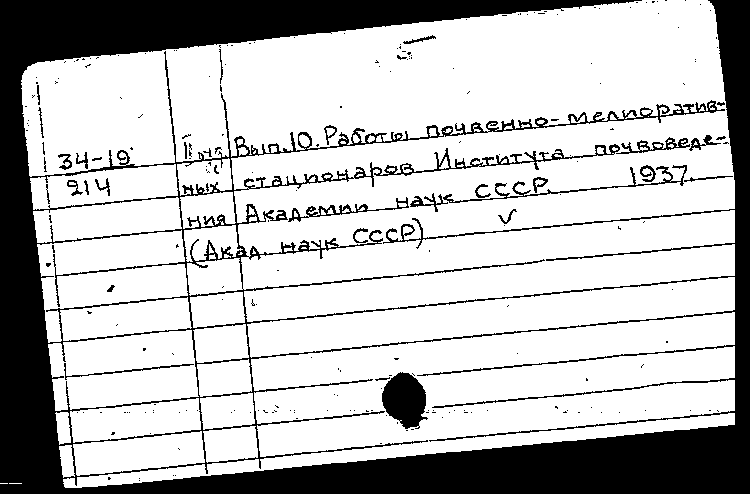 5
34-19
214
Вып.10. Работы почвенно-мелиоратив-
ных стационаров Института почвоведе-
ния Академии наук СССР. 1937.
(Акад. наук СССР) V